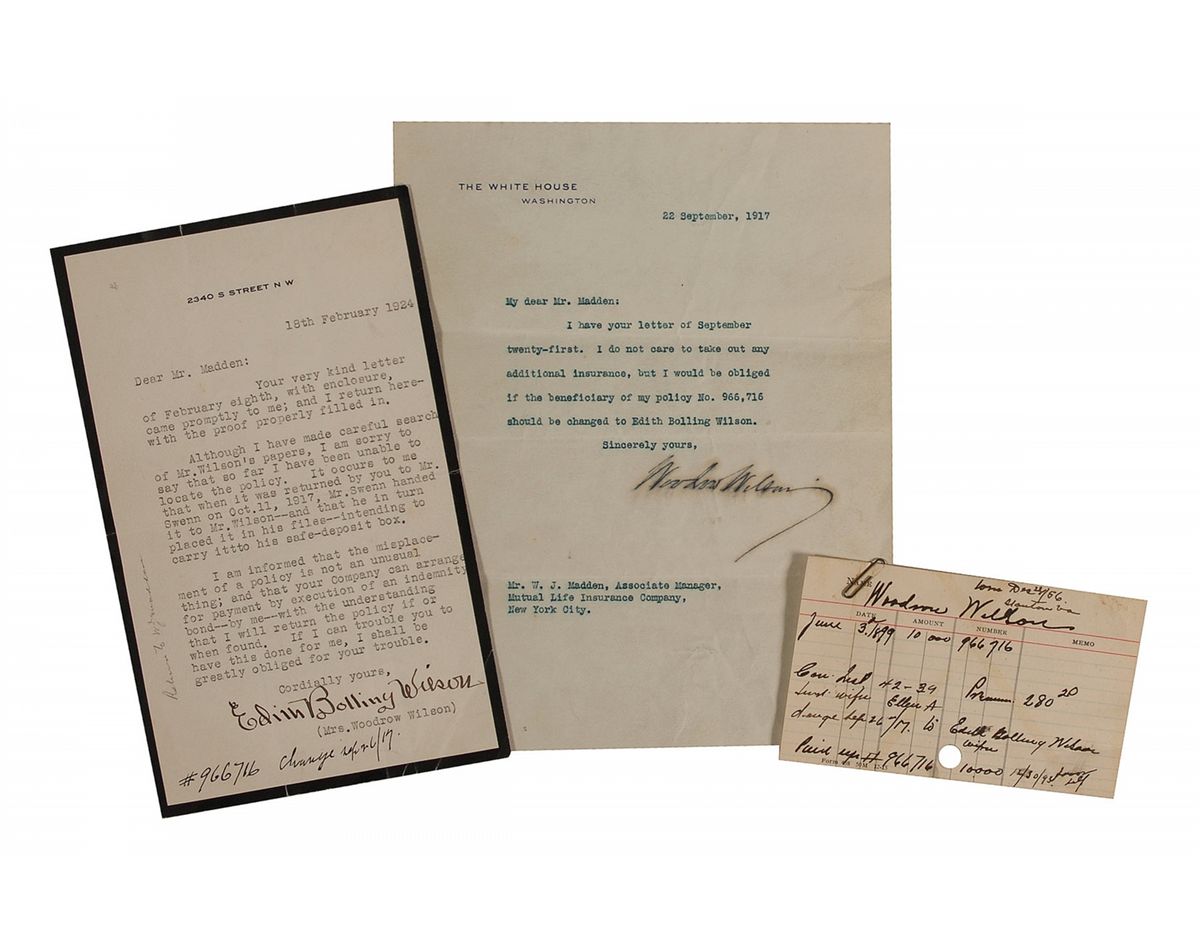 2340 S STREET N W
18th February 1924
Dear Mr. Madden:
Your very kind letter
of February eighth, with enclosure,
came promptly to me; and I return here-
with the proof properly filled in.
Although I have made careful search
of Mr.Wilson's papers, I am sorry to
say that so far I have been unable to
locate the policy. It occurs to me
that when it was returned by you to Mr.
Swenn on Oct.11, 1917, Mr.Swenn handed
it to Mr.Wilson--and that he in turn
placed it in his files--intending to
carry ittto his safe-deposit box.
I am informed that the misplace-
ment of a policy is not an unusual
thing; and that your Company can arrange
for payment by execution of an indemnity
bond--by me--with the understanding
that I will return the policy if or
when found. If I can trouble you to
have this done for me, I shall be
greatly obliged for your trouble.
Cordially yours,
Edith Bolling Wilson
(Mrs.Woodrow Wilson)
#966716 change Sep 26/17.
THE WHITE HOUSE
WASHINGTON
22 September, 1917
My dear Mr. Madden:
I have your letter of September
twenty-first. I do not care to take out any
additional insurance, but I would be obliged
if the beneficiary of my policy No. 966,716
should be changed to Edith Bolling Wilson.
Sincerely yours,
Woodrow Wilson
Mr. W. J. Madden, Associate Manager,
Mutual Life Insurance Company,
New York City.
born Dec 28/56.
Staunton Va
NAME Woodrow Wilson
DATE AMOUNT NUMBER MEMO
June 3 1899 10 000 966716
42-39 Premium 280 20
wife Ellen A
change Sep 26/17. to Edith Bolling Wilson
wife
Paid up # 966716 10000
Form